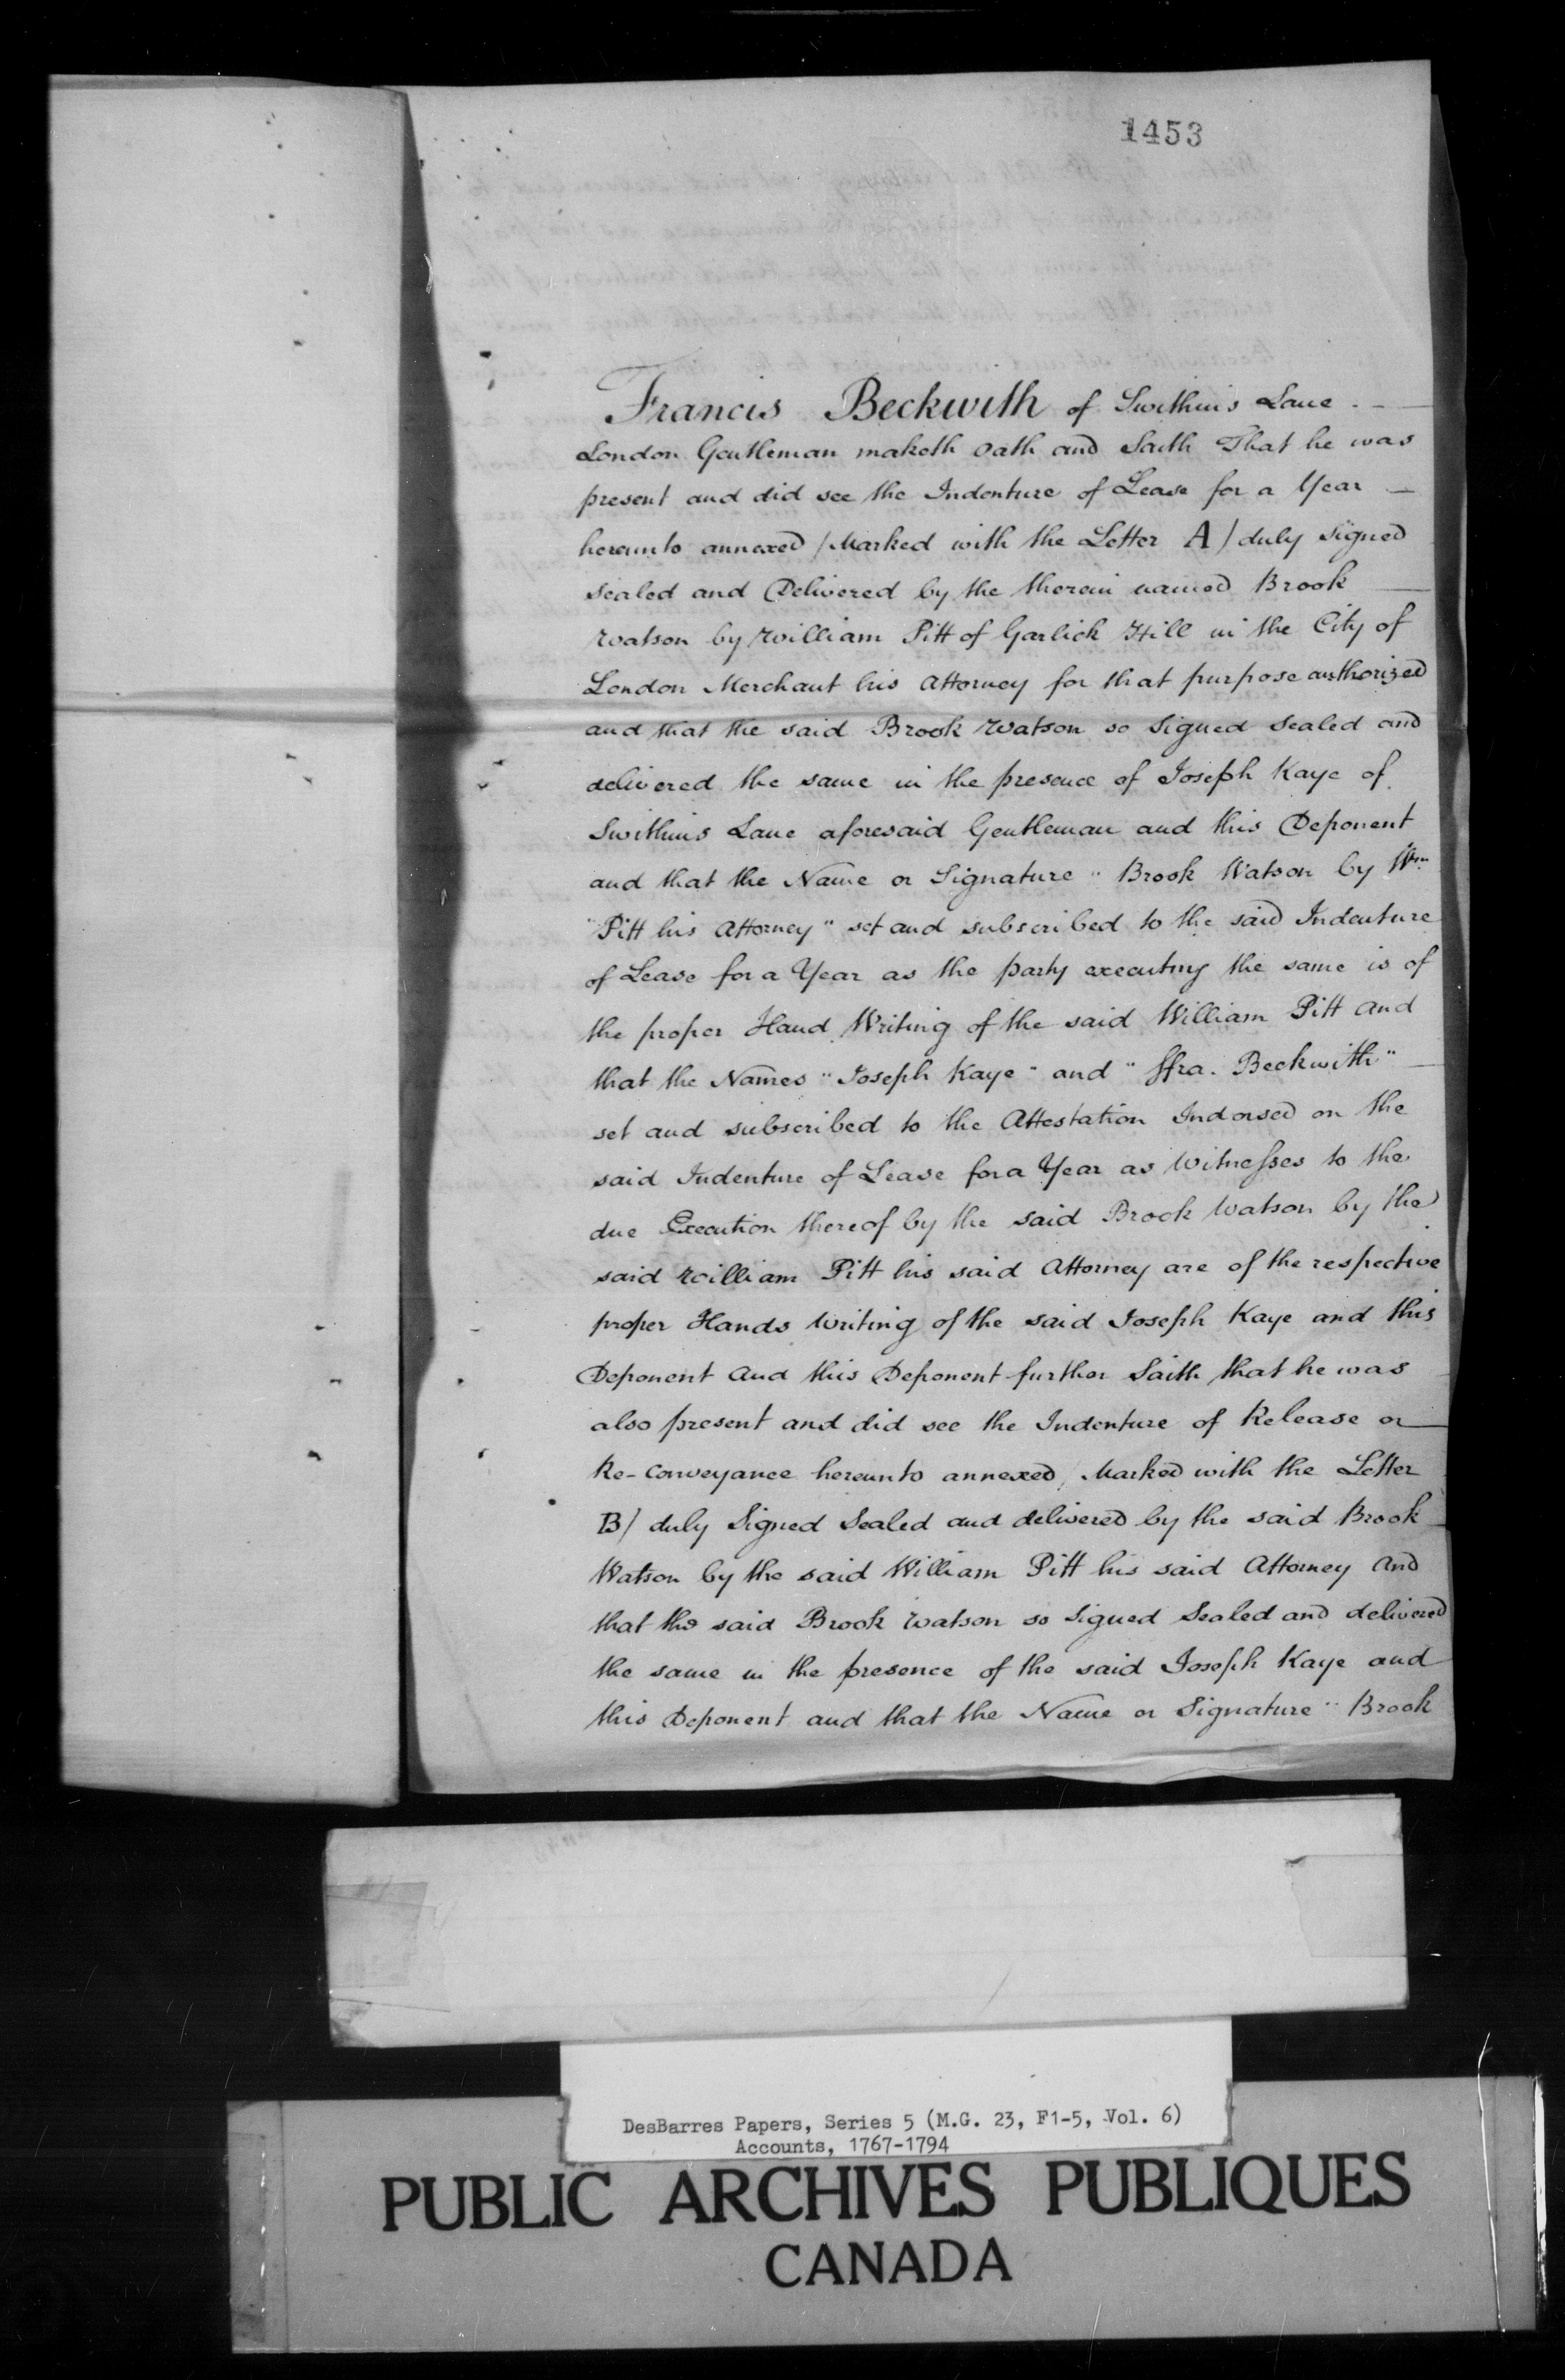 1453
Francis Beckwith of Swithin's Lane
London Gentleman maketh Oath and Saith That he was
present and did see the Indenture of Lease for a Year
hereunto annexed /Marked with the Letter A/ duly signed
sealed and Delivered by the therein named Brook
Watson by William Pitt of Garlick Hill in the City of
London Merchant his Attorney for that purpose authorized
and that the said Brook Watson so Signed Sealed and
delivered the same in the presence of Joseph Kaye of
Swithins Lane aforesaid Gentleman and this Deponent
and that the Name or Signature "Brook Watson by Wm
"Pitt his Attorney" set and subscribed to the said Indenture
of Lease for a Year as the party executing the same is of
the proper Hand Writing of the said William Pitt and
that the Names "Joseph Kaye" and "ffra. Beckwith"
set and subscribed to the Attestation Indorsed on the
said Indenture of Lease for a Year as Witnesses to the
due Execution thereof by the said Brook Watson by the
said William Pitt his said Attorney are of the respective
proper Hands Writing of the said Joseph Kaye and this
Deponent And this Deponent further Saith that he was
also present and did see the Indenture of Release or
Re-conveyance hereunto annexed / Marked with the Letter
B/ duly Signed Sealed and delivered by the said Brook
Watson by the said William Pitt his said Attorney And
that the said Brook Watson so Signed Sealed and delivered
the same in the presence of the said Joseph Kaye and
this Deponent and that the Name or Signature "Brook
DesBarres Papers, Series 5 (M.G. 23, F1-5, Vol. 6)
Accounts, 1767-1794
PUBLIC ARCHIVES PUBLIQUES
CANADA